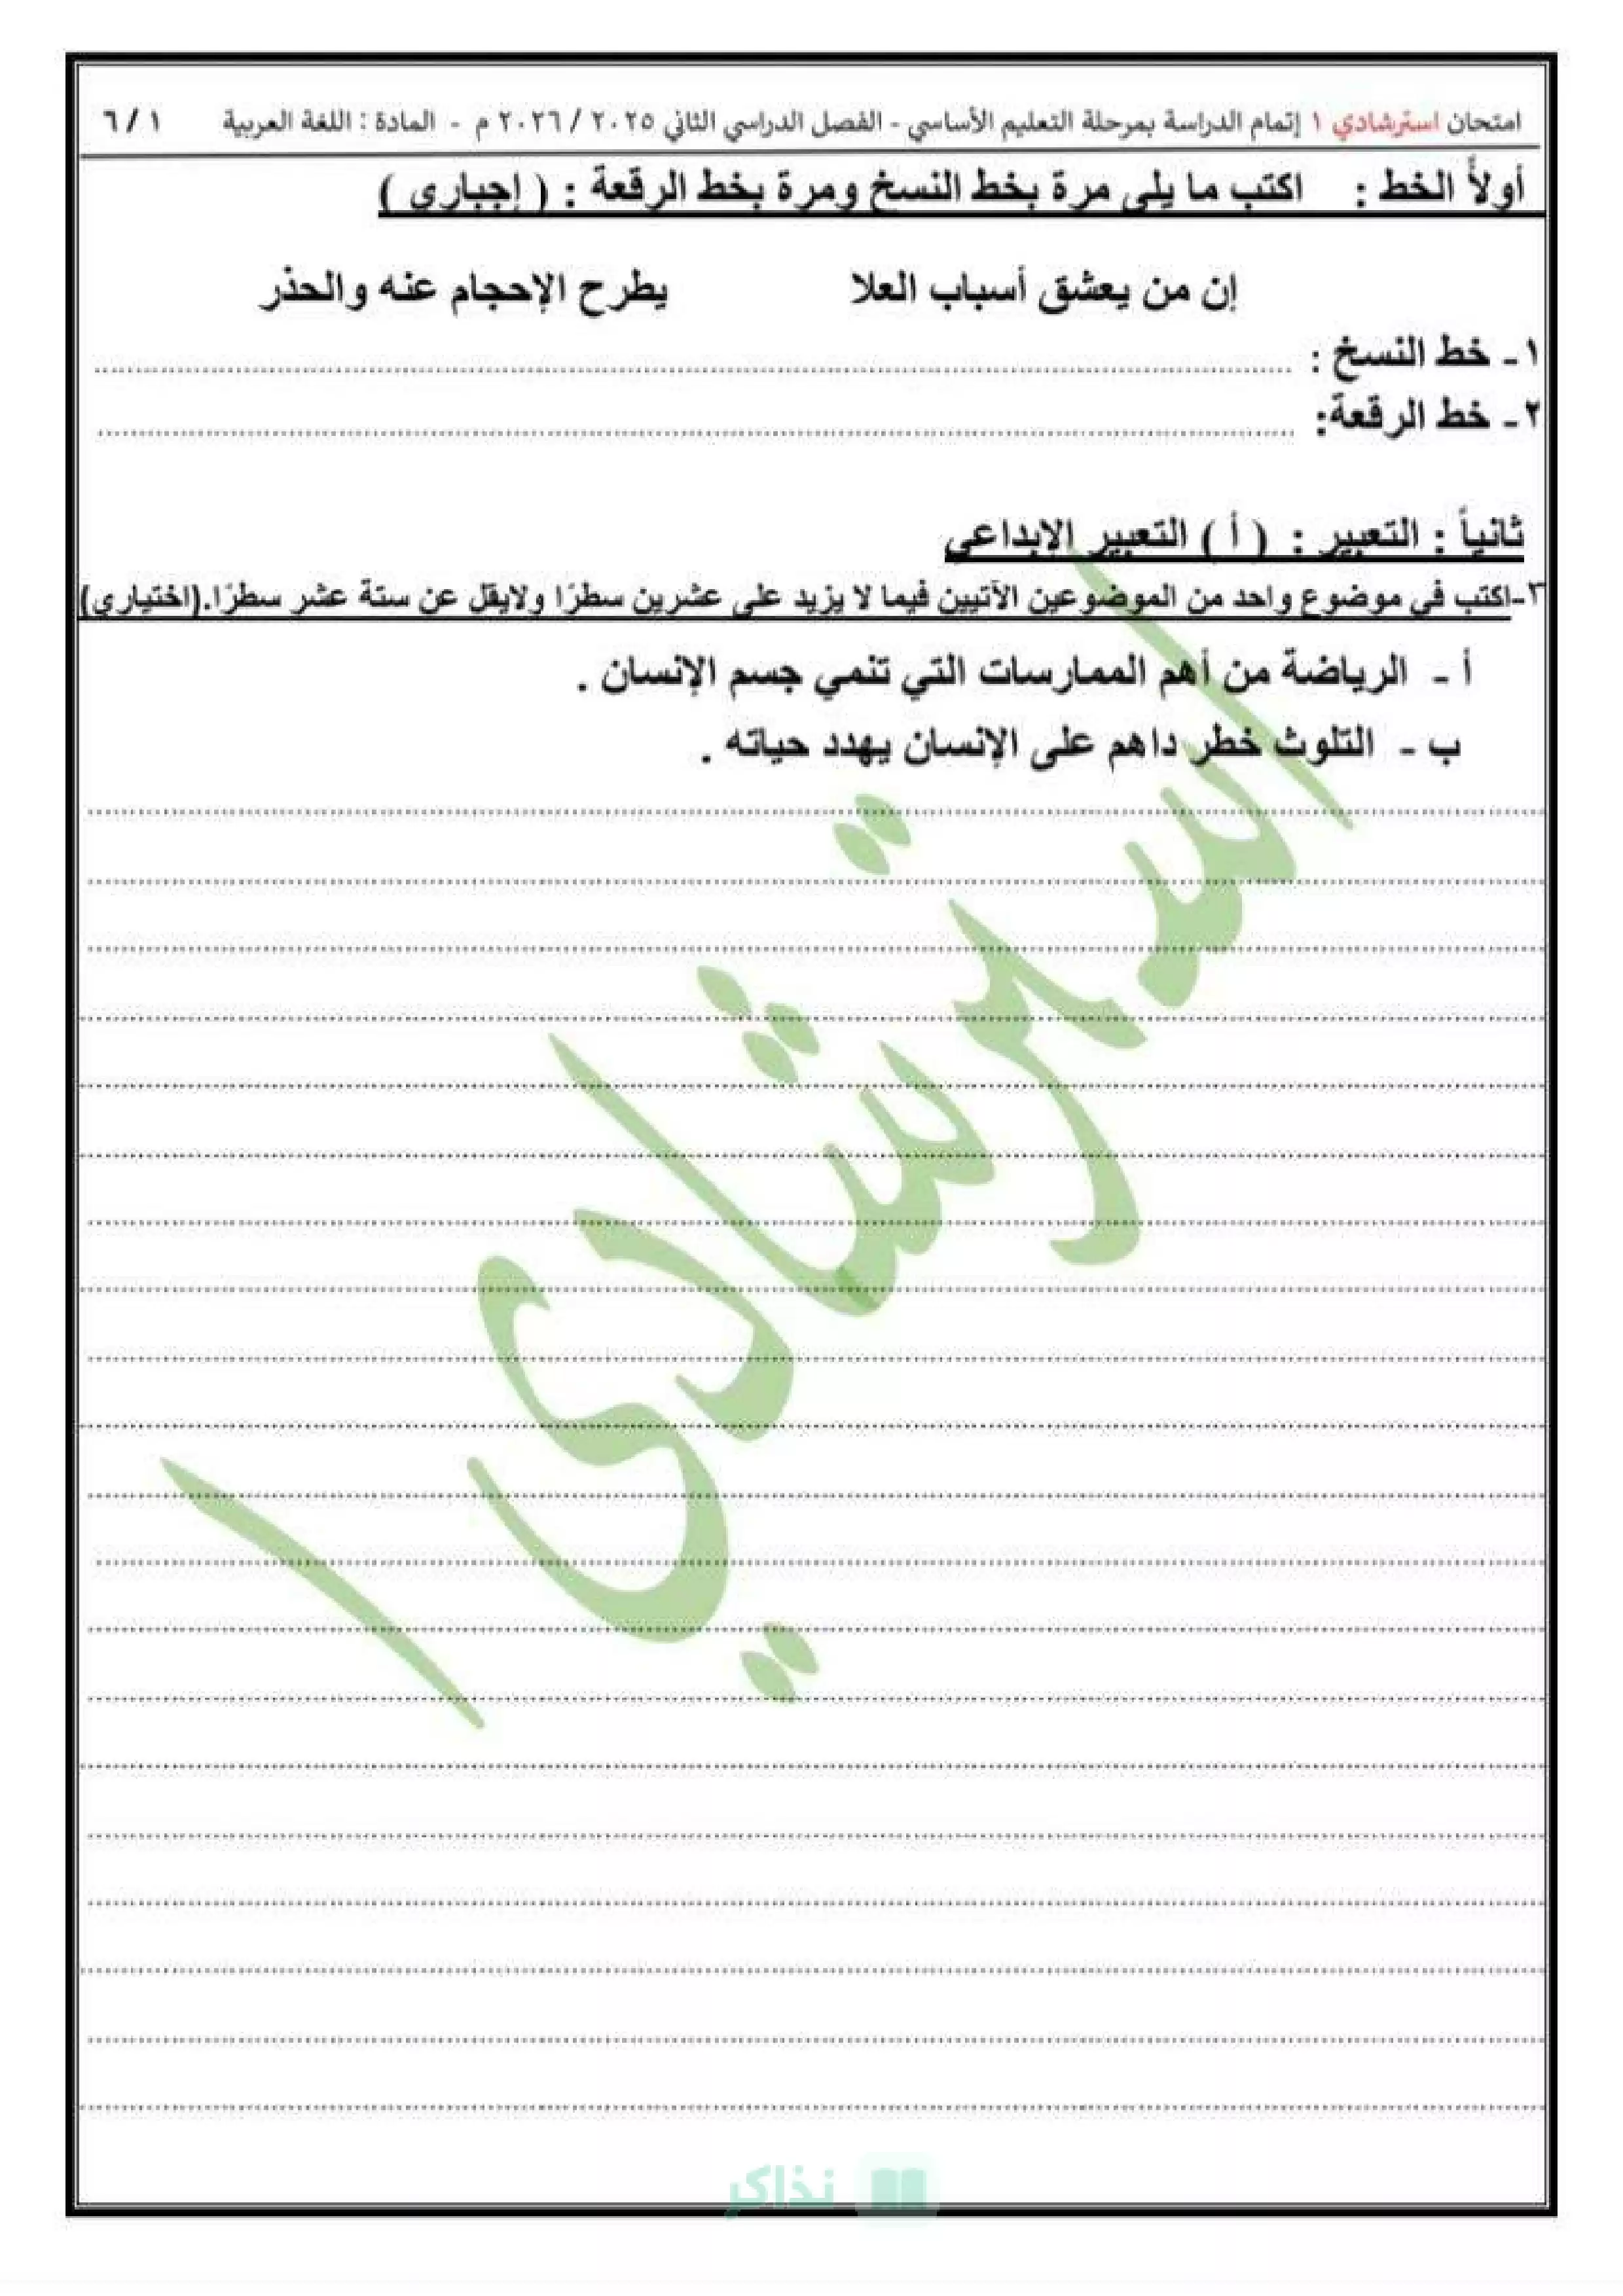 امتحان استرشادي ١ إتمام الدراسة بمرحلة التعليم الأساسي - الفصل الدراسي الثاني ٢٠٢٥ / ٢٠٢٦ م - المادة : اللغة العربية ١ / ٦
أولاً الخط : اكتب ما يلى مرة بخط النسخ ومرة بخط الرقعة : ( إجبارى )
إن من يعشق أسباب العلا يطرح الإحجام عنه والحذر
١- خط النسخ :
٢- خط الرقعة:
ثانياً : التعبير : ( أ ) التعبير الإبداعي
٣-اكتب في موضوع واحد من الموضوعين الآتيين فيما لا يزيد على عشرين سطرًا ولايقل عن ستة عشر سطرًا.(اختياري)
أ - الرياضة من أهم الممارسات التي تنمي جسم الإنسان .
ب - التلوث خطر داهم على الإنسان يهدد حياته .
استرشادي ١
نذاكر